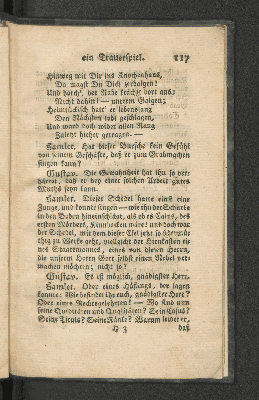 ein Trauerspiel. 117
Hinweg mit Dir ins Knochenhaus,
Da magst Du Dich zerfallen! —
Und horch'! der Rabe krächzt dort aus:
Nicht dahin! — unterm Galgen;
Heimtückisch hatt' er lebenslang
Den Nächsten todt geschlagen,
Und ward doch wider allen Rang
Zuletzt hieher getragen. —
Hamlet. Hat dieser Bursche kein Gefühl
von seinem Geschäfte, daß er zum Grabmachen
singen kann?
Gustav. Die Gewohnheit hat ihn so ver-
härtet, daß er bey einer solchen Arbeit gutes
Muths seyn kann.
Hamlet. Dieser Schedel hatte einst eine
Zunge, und konnte singen — wie ihn der Schurke
in den Boden hineinschlägt, als ob es Cains, des
ersten Mörders, Kinnbacken wäre! und doch war
der Schedel, mit dem dieser Esel jetzt so übermü-
thig zu Werke geht, vielleicht der Hirnkasten ei-
nes Staatsmannes, eines von diesen Herrn,
die unserm Herrn Gott selbst einen Nebel vor-
machen möchten; nicht so?
Gustav. Es ist möglich, gnädigster Herr.
Hamlet. Oder eines Höflings, der sagen
konnte: Wie befindet ihr euch, gnädigster Herr?
Oder eines Rechtsgelehrten! — Wo sind nun
seine Quidditäten und Qualitäten? Seine Casus?
Seine Tituls? Seine Ränke? Warum leidet er,
H 3 daß